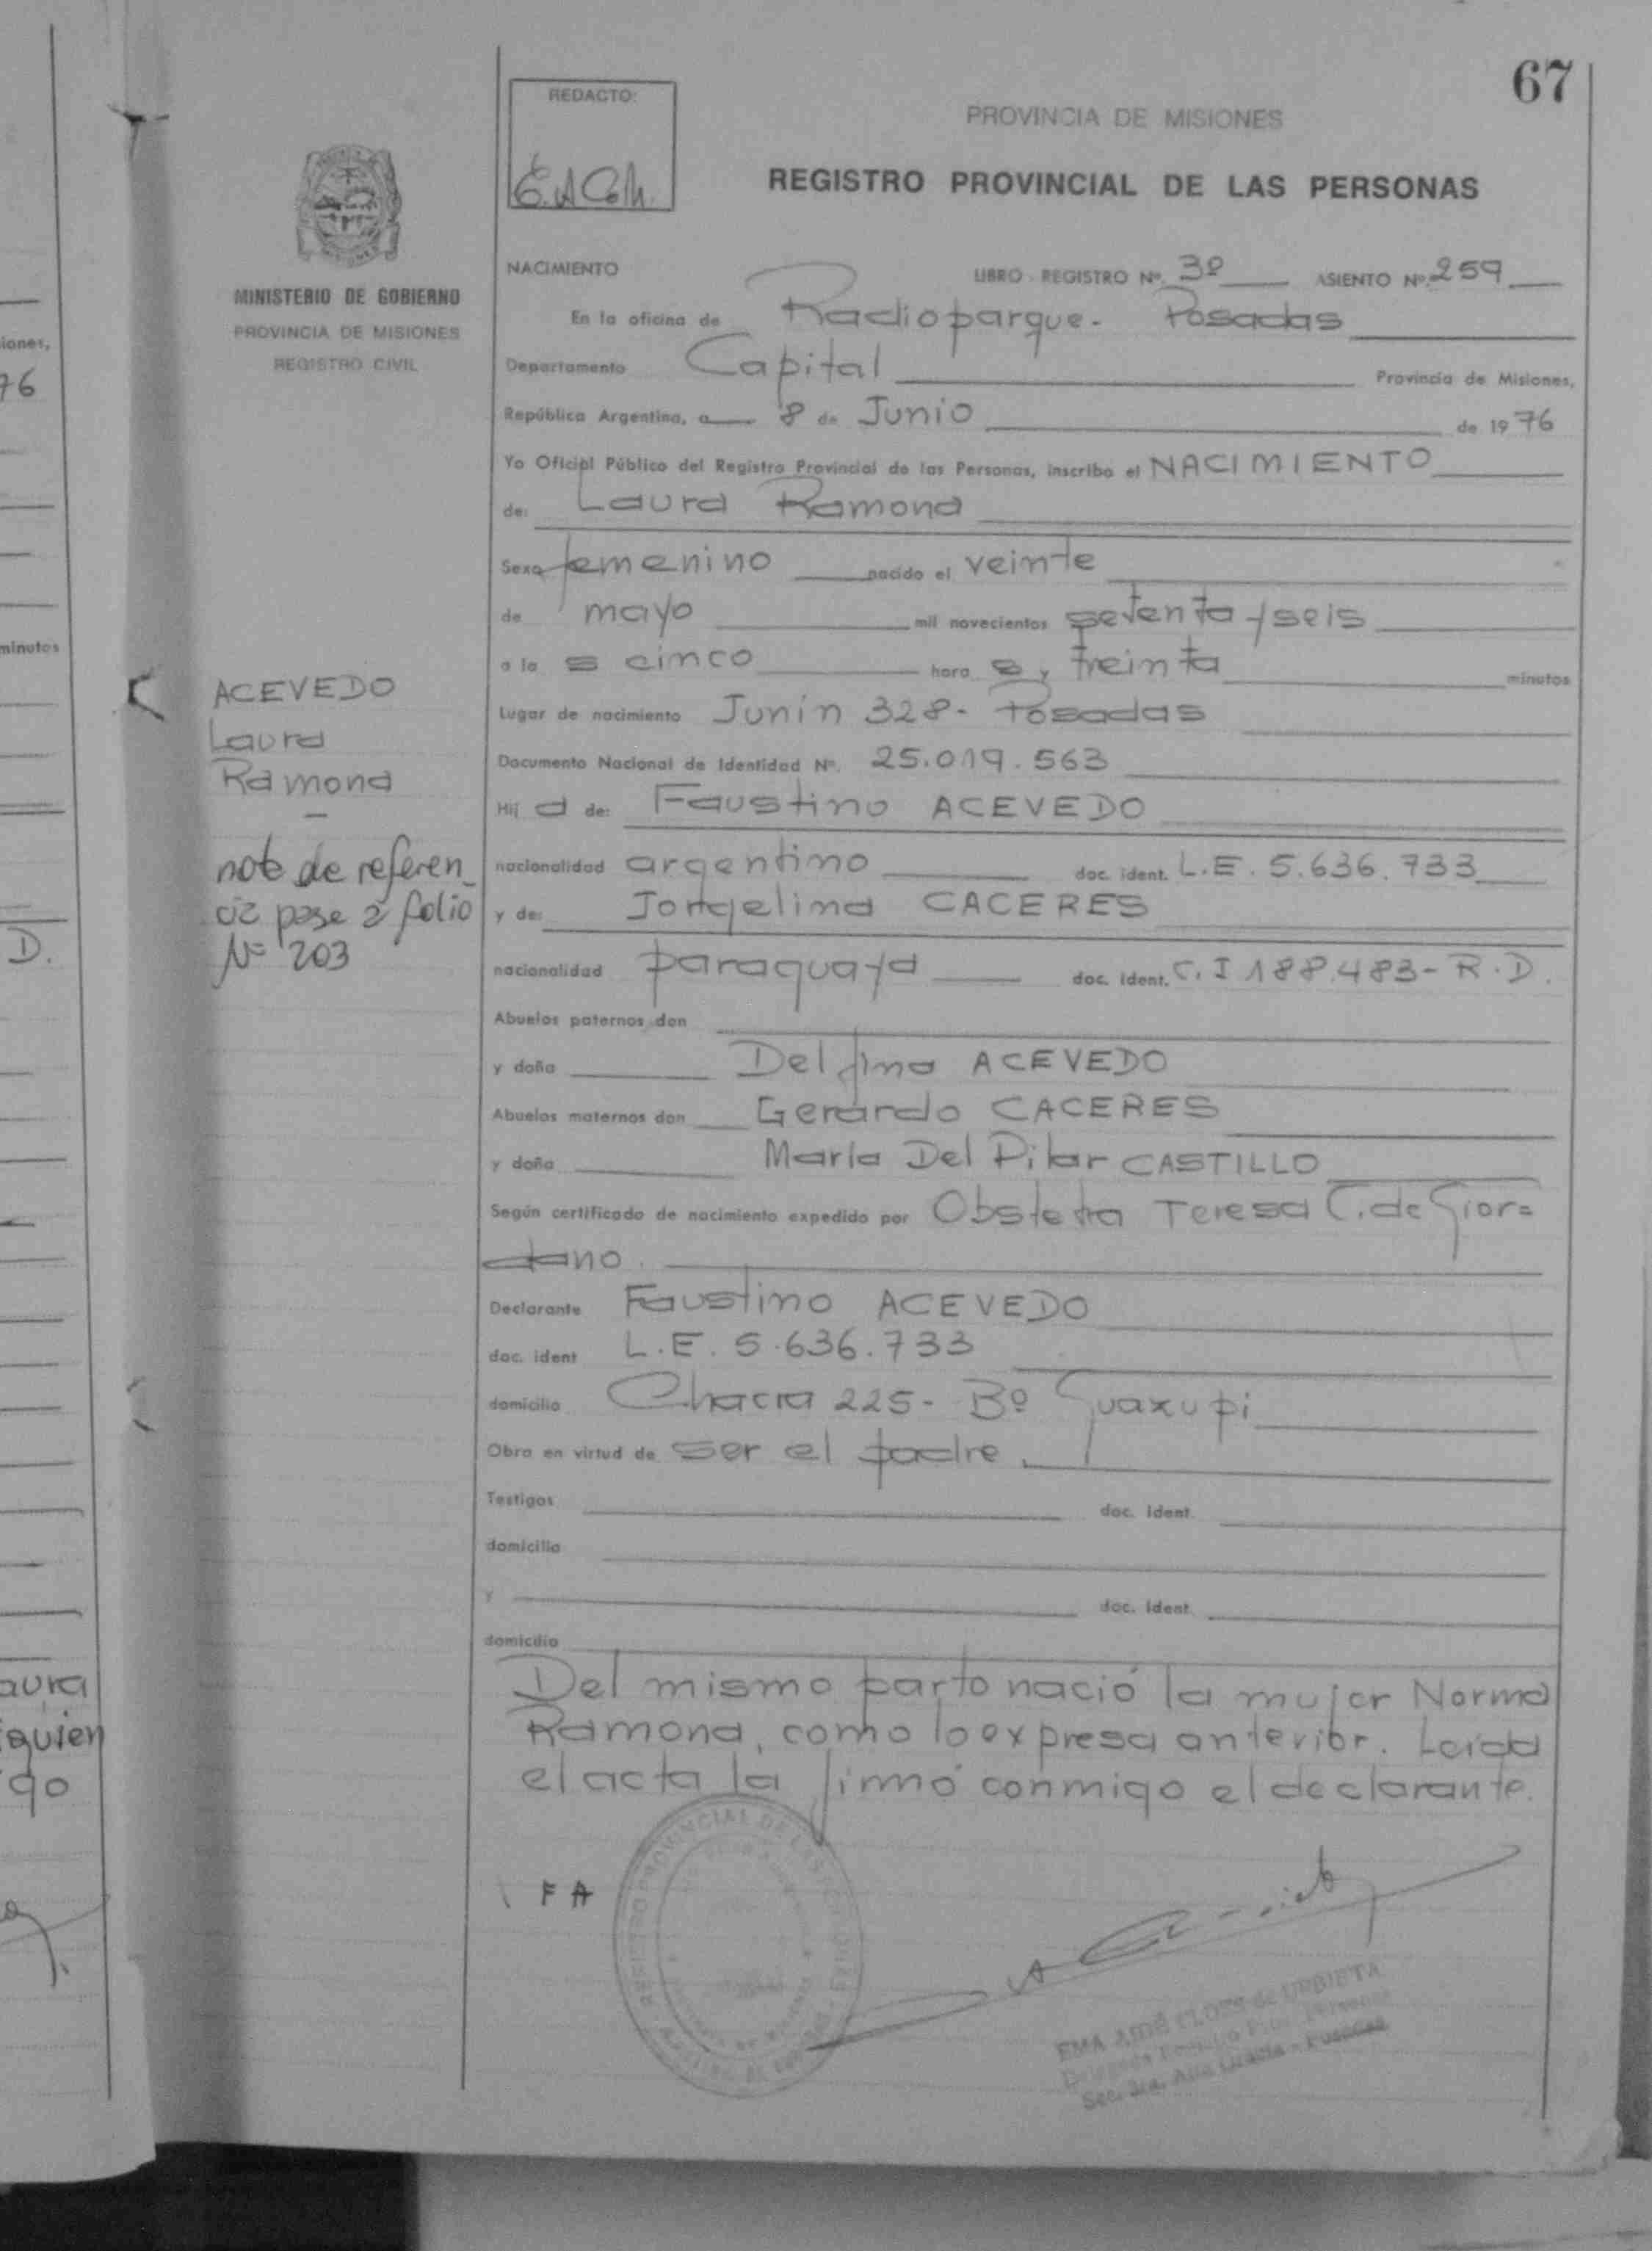 67
REDACTO:
PROVINCIA DE MISIONES
REGISTRO PROVINCIAL DE LAS PERSONAS
MINISTERIO DE GOBIERNO
PROVINCIA DE MISIONES
REGISTRO CIVIL
NACIMIENTO LIBRO REGISTRO Nº. 3º ASIENTO Nº. 259
En la oficina de Radioparque - Posadas
Departamento Capital Provincia de Misiones,
República Argentina, a 8 de Junio de 1976
Yo Oficial Público del Registro Provincial de las Personas, inscribo el NACIMIENTO
de: Laura Ramona
Sexo femenino nacido el veinte
de mayo mil novecientos setenta y seis
a las cinco horas y treinta minutos
Lugar de nacimiento Junín 328 - Posadas
Documento Nacional de Identidad Nº. 25.019.563
Hija de: Faustino ACEVEDO
nacionalidad argentino doc. ident. L.E. 5.636.733
y de: Jorgelina CACERES
nacionalidad paraguaya doc. ident. C.I 188.483 - R.D.
Abuelos paternos don
y doña Delfina ACEVEDO
Abuelos maternos don Gerardo CACERES
y doña María Del Pilar CASTILLO
Según certificado de nacimiento expedido por Obstetra Teresa C. de Gior=
dano.
Declarante Faustino ACEVEDO
doc. ident L.E. 5.636.733
domicilio Chacra 225 - Bº Guaxupi
Obra en virtud de ser el padre.
Testigos doc. ident.
domicilio
y doc. ident.
domicilio
Del mismo parto nació la mujer Norma
Ramona, como lo expresa anterior. Leída
el acta la firmó conmigo el declarante.
F A
ACEVEDO
Laura
Ramona
nota de referen_
cia pase a folio
Nº 203
iones,
76
minutos
D.
aura
iquien
go